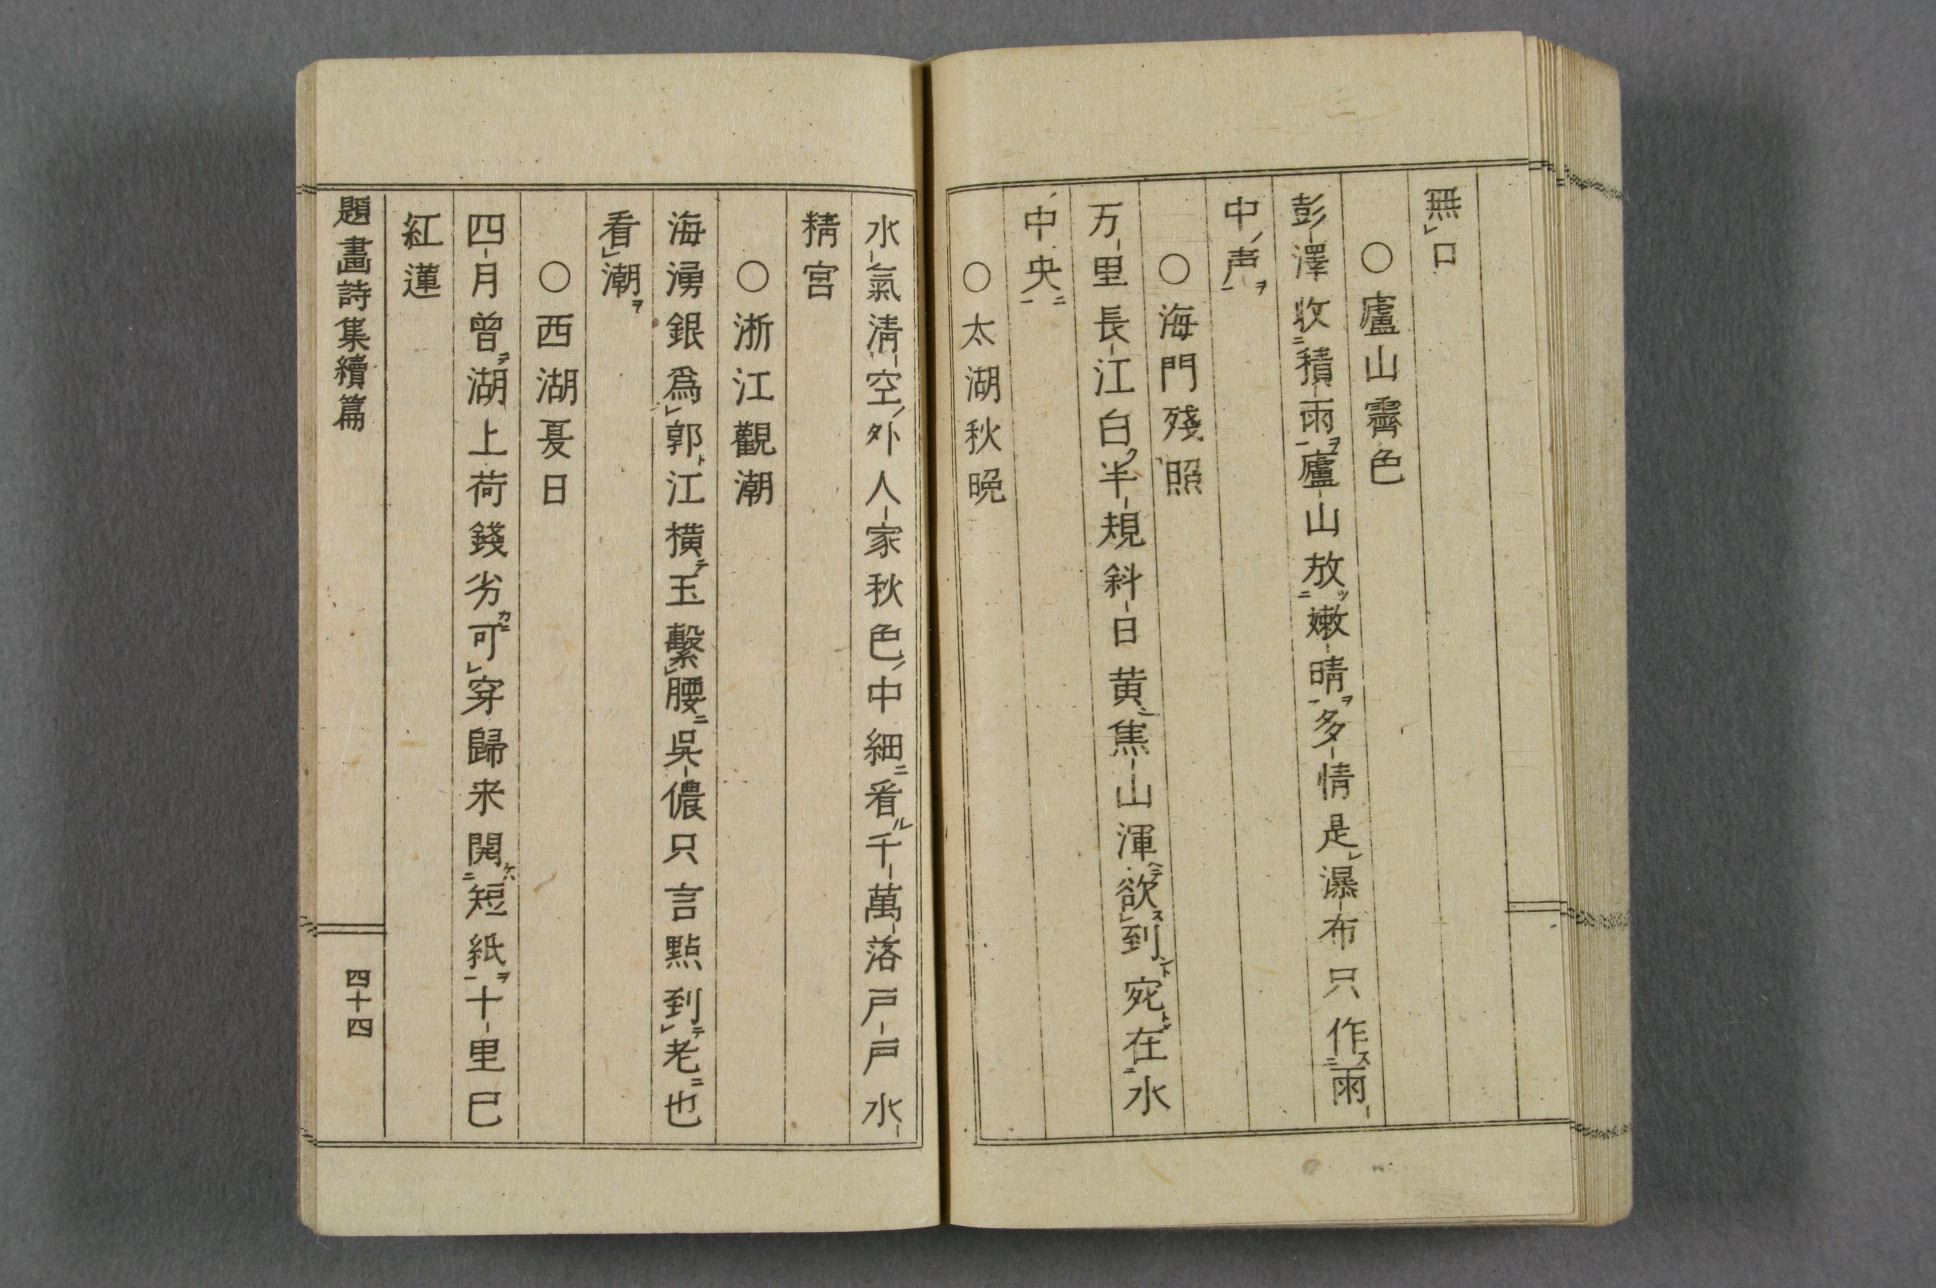 無口
○廬山霽色
彭澤收積雨廬山放嫩晴多情是瀑布只作雨
中声
○海門殘照
万里長江白半規斜日黄焦山渾欲到宛在水
中央
○太湖秋晩
水氣清空外人家秋色中細看千萬落戸戸水
精宮
○浙江觀潮
海湧銀爲郭江横玉繫腰吳儂只言點到老也
看潮
○西湖夏日
四月曾湖上荷錢劣可穿歸来開短紙十里巳
紅蓮
題畫詩集續篇
四十四